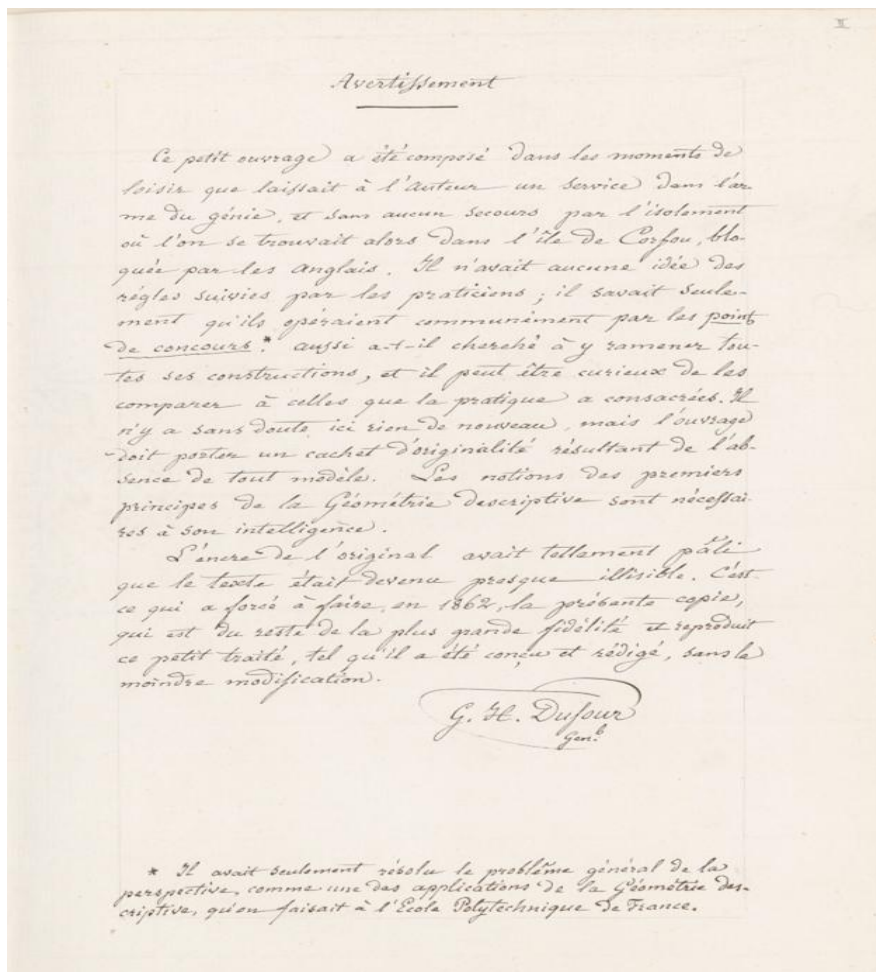 II
Avertissement
Ce petit ouvrage a été composé dans les moments de
loisir que laissait à l'Auteur un service dans l'ar-
me du génie, et sans aucun secours par l'isolement
où l'on se trouvait alors dans l'île de Corfou, blo-
quée par les Anglais. Il n'avait aucune idée des
régles suivies par les praticiens ; il savait seule-
ment qu'ils opéraient communément par les points
de concours * : aussi a-t-il cherché à y ramener tou-
tes ses constructions, et il peut être curieux de les
comparer à celles que la pratique a consacrées. Il
n'y a sans doute ici rien de nouveau, mais l'ouvrage
doit porter un cachet d'originalité résultant de l'ab-
sence de tout modèle. Les notions des premiers
principes de la Géométrie descriptive sont nécessai-
res à son intelligence.
L'encre de l'original avait tellement pâli
que le texte était devenu presque illisible. C'est
ce qui a forcé à faire, en 1862, la présente copie,
qui est du reste de la plus grande fidélité et reproduit
ce petit traité, tel qu'il a été conçu et rédigé, sans la
moindre modification.
G. H. Dufour
Gen.l
* Il avait seulement résolu le problême général de la
perspective, comme une des applications de la Géométrie des-
criptive, qu'on faisait à l'Ecole Polytechnique de France.